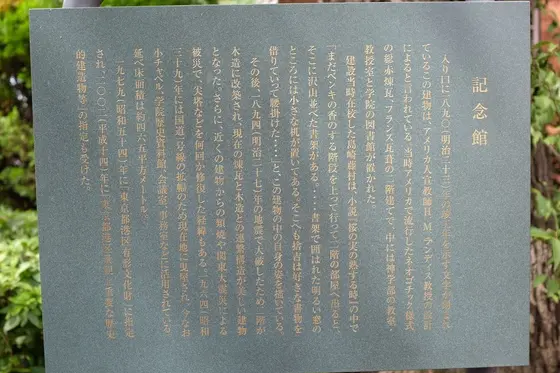 記念館
入り口に一八九〇(明治二十三)年の
ているこの建物は、アメリカ人宣教師H・M・ランディス教授の設計
によると言われている。当時アメリカで流行したネオゴチック様式
の総赤煉瓦、フランス瓦葺の二階建てで、中には神学部の教室、
教授室と学院の図書館が置かれた。
建設当時在校した島崎藤村は、小説「桜の実の熟する時」の中で
「まだペンキの香のする階段を上って行って二階の部屋へ出ると、
そこに沢山並べた書架がある。・・・書架で囲はれた明るい窓の
ところには小さな机が置いてある。そこへも捨吉は好きな書物を
借りていって腰掛けた・・・」と、この建物の中の自身の姿を描いている。
その後、一八九四(明治二十七)年の地震で大破したため二階が
木造に改築され、現在の煉瓦と木造との連繋構造が美しい建物
となった。さらに、近くの建物からの類焼や関東大震災による
被災で、尖塔などを何回か修復した経緯もある。一九六四(昭和
三十九)年には国道一号線の拡幅のため現在地に曳家され、今なお
小チャペル、学院歴史資料館、会議室、事務室などに活用されている。
延べ床面積は約四六五平方メートル。
一九七九(昭和五十四)年に「東京都港区有形文化財」に指定
され、二〇〇二(平成十四)年に「東京都選定
的建造物等)」の指定も受けた。